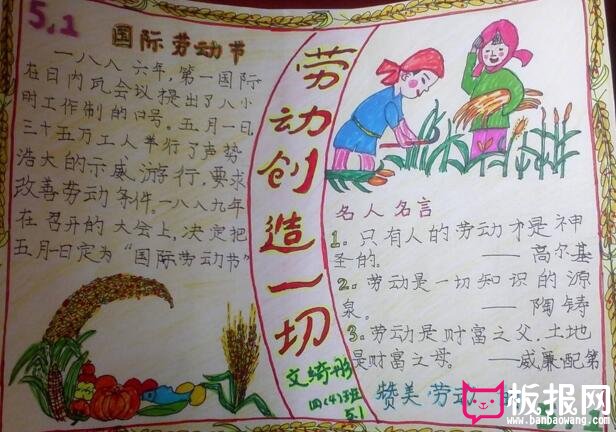 5.1
国际劳动节
一八八六年,第一国际
在日内瓦会议提出了八小
时工作制的口号。五月一日
三十五万工人举行了声势
浩大的示威游行,要求
改善劳动条件。一八八九年
在召开的大会上,决定把
五月一日定为“国际劳动节”
劳动创造一切
文绮彤
四(4)班
5.1
名人名言
1。只有人的劳动才是神
圣的。——高尔基
2。劳动是一切知识的源
泉。——陶铸
3。劳动是财富之父.土地
是财富之母。——威廉·配第
赞美劳动
板报网
www.banbaowang.com